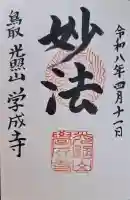 令和八年四月十一日
妙法
鳥取 光照山 学成寺